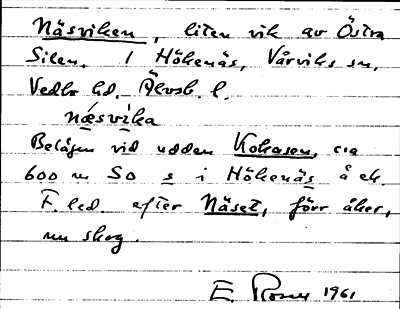 Näsviken, liten vik av Östra
Silen. I Hökenäs, Vårviks sn,
Vedbo hd. Älvsb. l.
næ̀svìka
Belägen vid udden Kokasen, ca
600 m SO s i Hökenäs å ek.
F. led. efter Näset, förr åker,
nu skog.
E. 1961